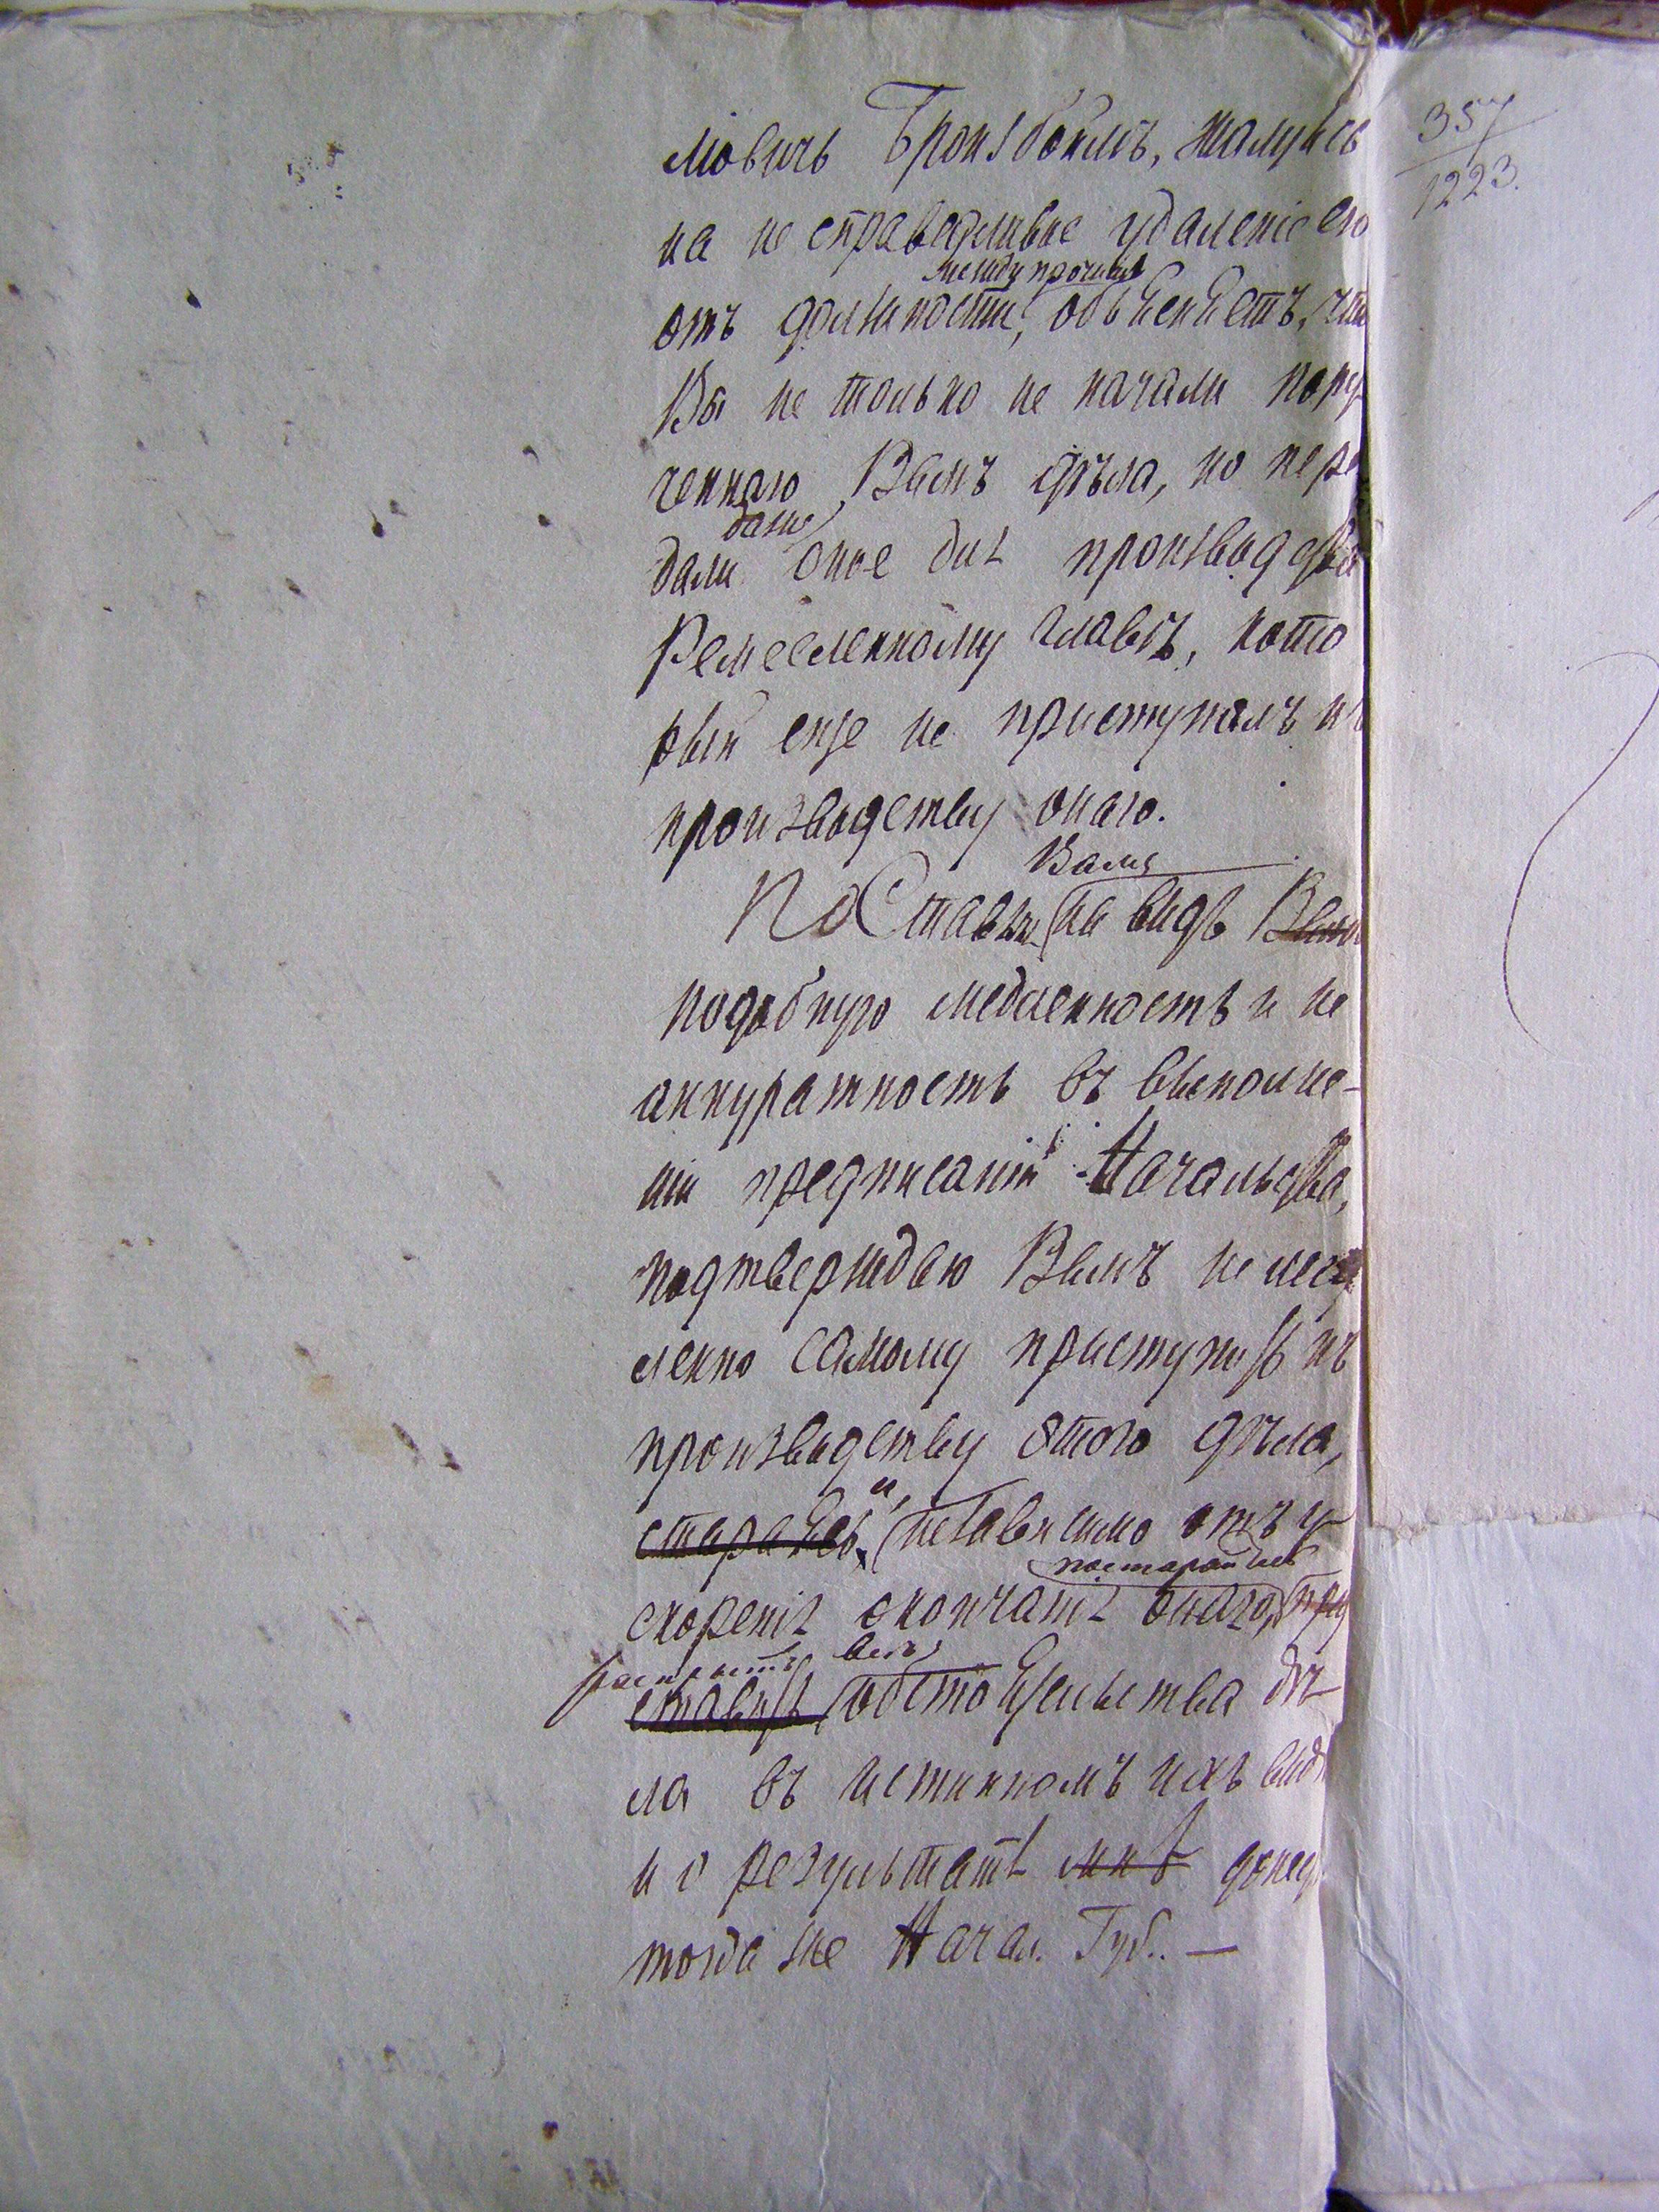 мовичь Бронзбоймъ, жалуясь
357
1223.
на не справедливое удаленіе его
между прочимъ
отъ должности, объясняетъ, что
Вы не только не начали пору
ченнаго Вамъ дѣла, но пере
даже
дали оное для производства
Ремесленному главѣ, кото
рый еще не приступалъ къ
производству онаго.
Вамъ
Поставляя на видъ Вашу
подобную медленность и не
аккуратность въ выполне-
ніи предписаній Начальства,
подтверждаю Вамъ немед
ленно самому приступить къ
производству этого дѣла,
и,
стараясь, независимо отъ у
постарайтесь
скоренія окончанія онаго,
раскрыть все
ставить обстоятельства дѣ
ла въ истинномъ ихъ видѣ
и о результатѣ мнѣ донести
тогда же Начал. Губ. —